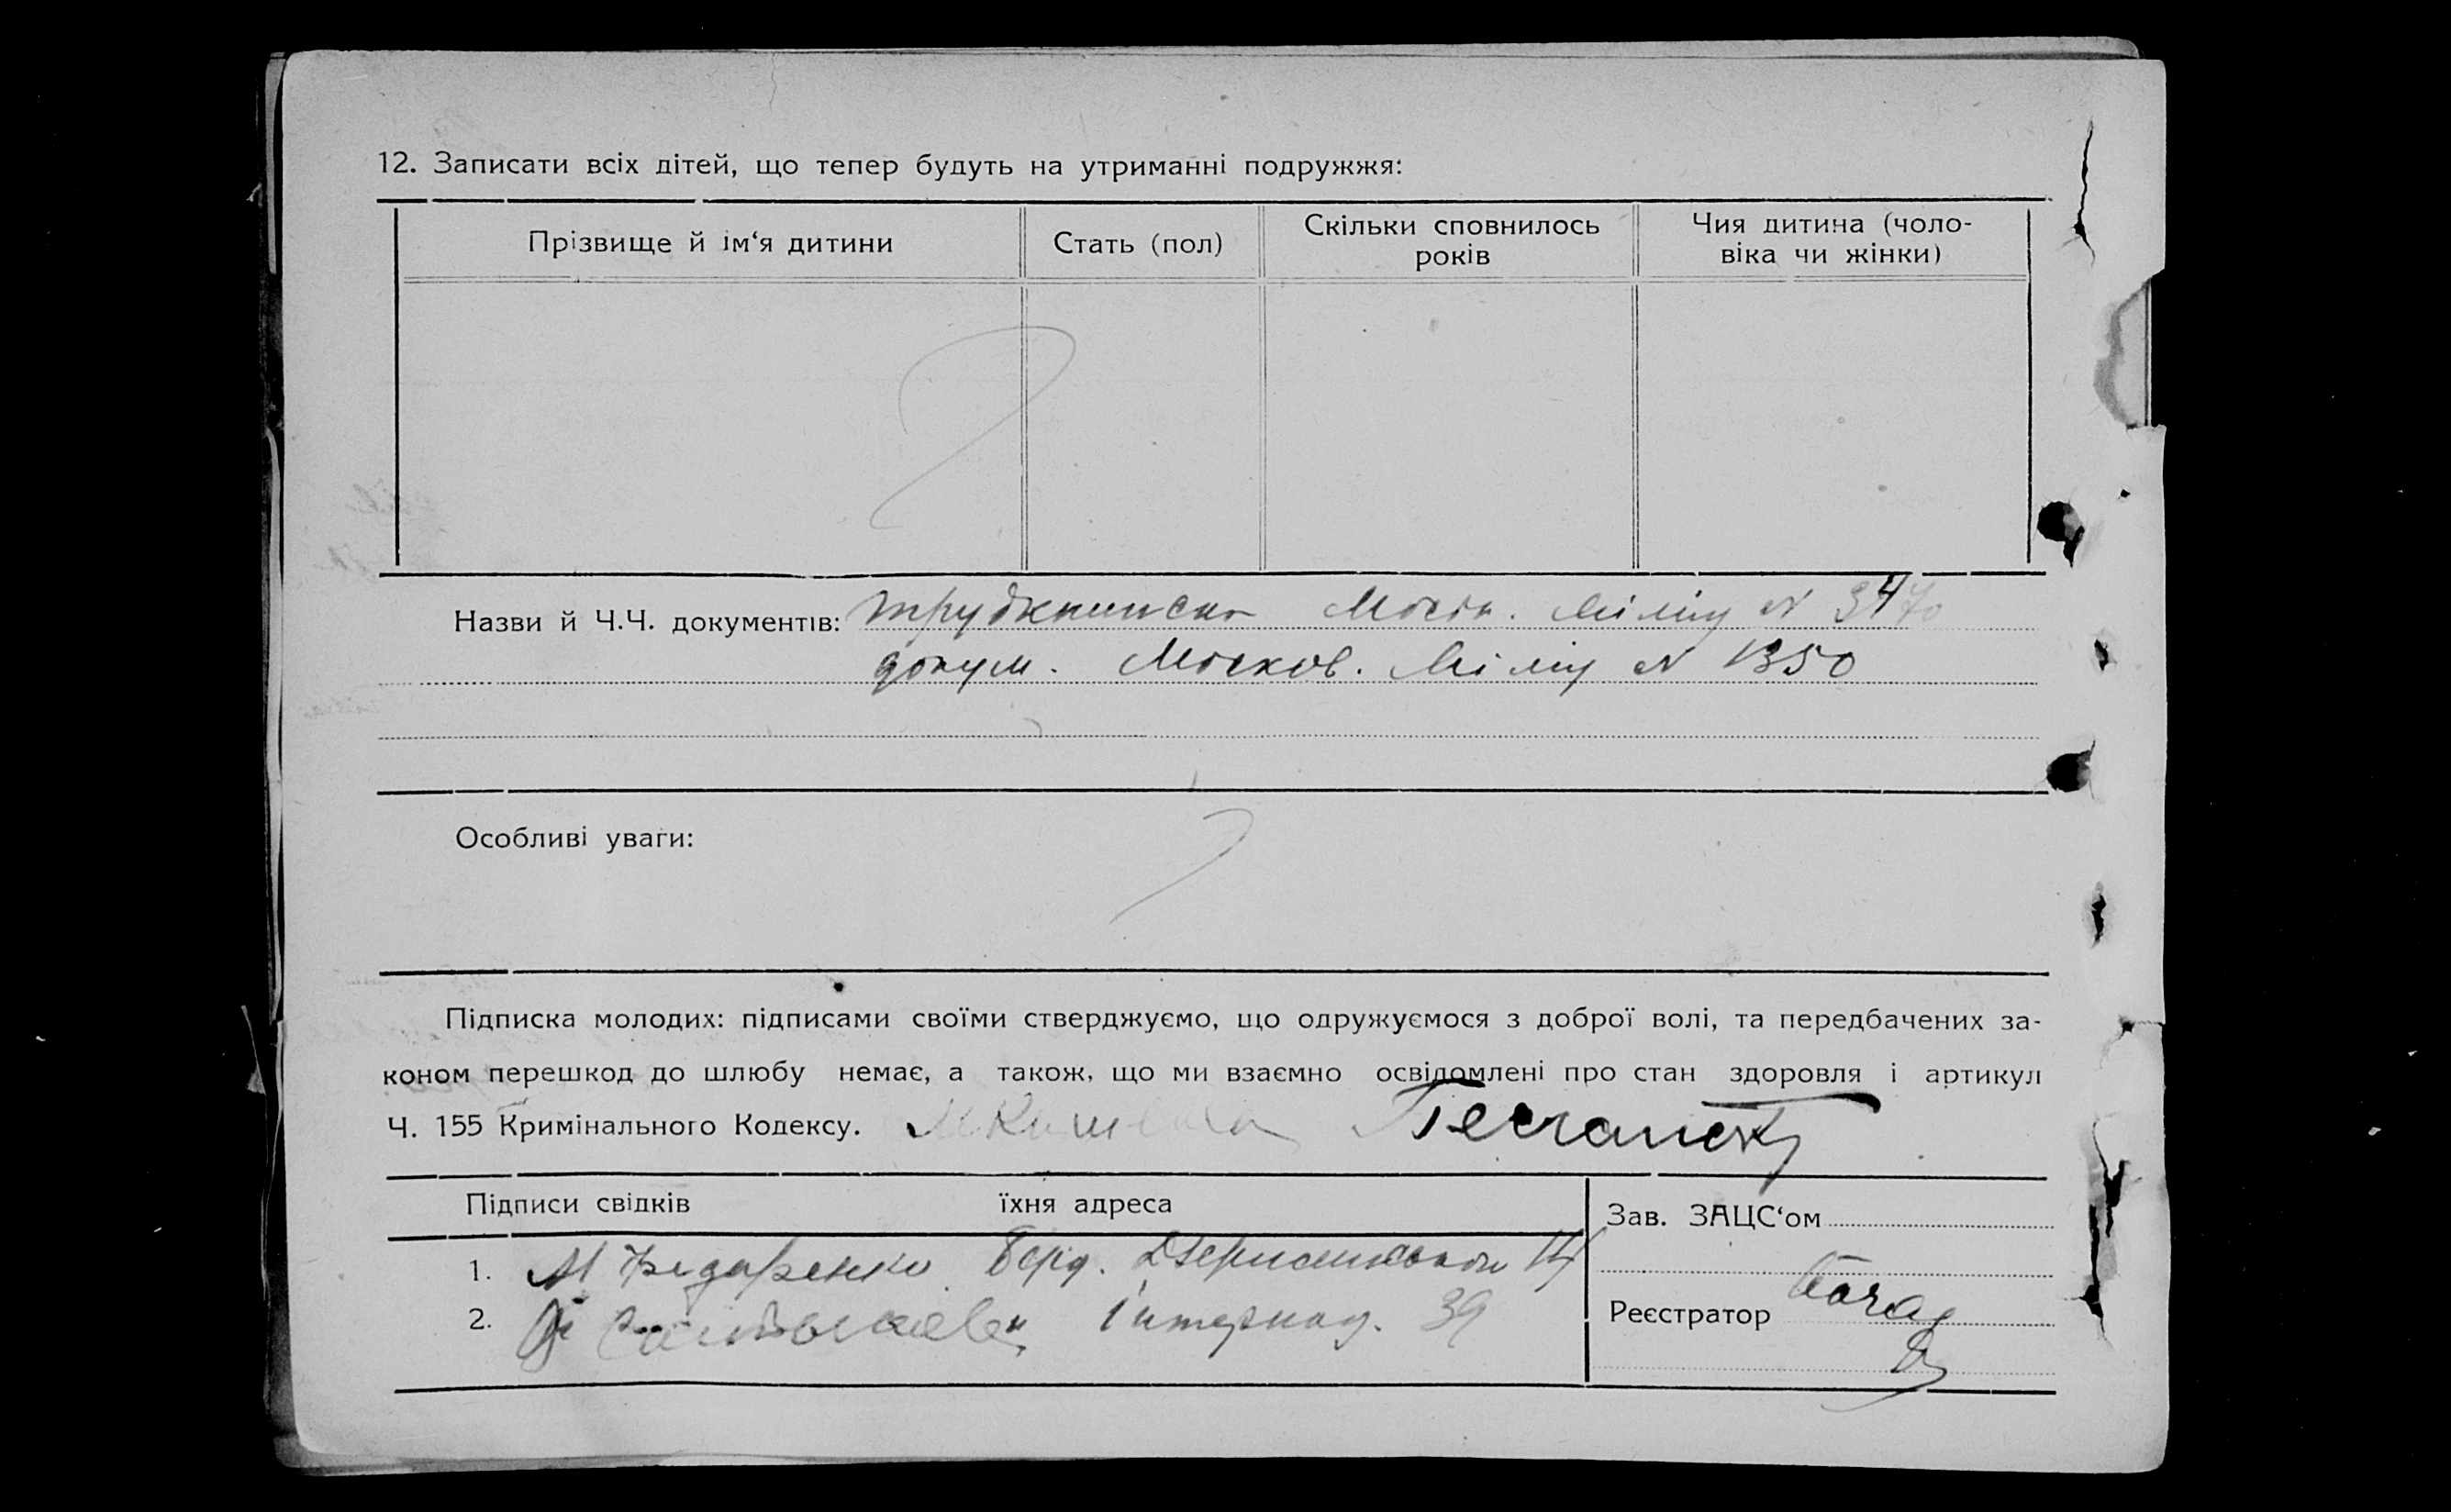 12. Записати всіх дітей, що тепер будуть на утриманні подружжя:
Прізвище й ім‘я дитини
Стать (пол)
Скільки сповнилось
років
Чия дитина (чоло-
віка чи жінки)
Назви й Ч.Ч. документів: трудкниска Моск. Міліц N 3470
докум. Москов. Міліц N 1350
Особливі уваги:
Підписка молодих: підписами своїми стверджуємо, що одружуємося з доброї волі, та передбачених за-
коном перешкод до шлюбу немає, а також, що ми взаємно освідомлені про стан здоровля і артикул
Ч. 155 Кримінального Кодексу.
Підписи свідків їхня адреса
Зав. ЗАЦС‘ом
1. М
2. Інтернац. 39
Реєстратор